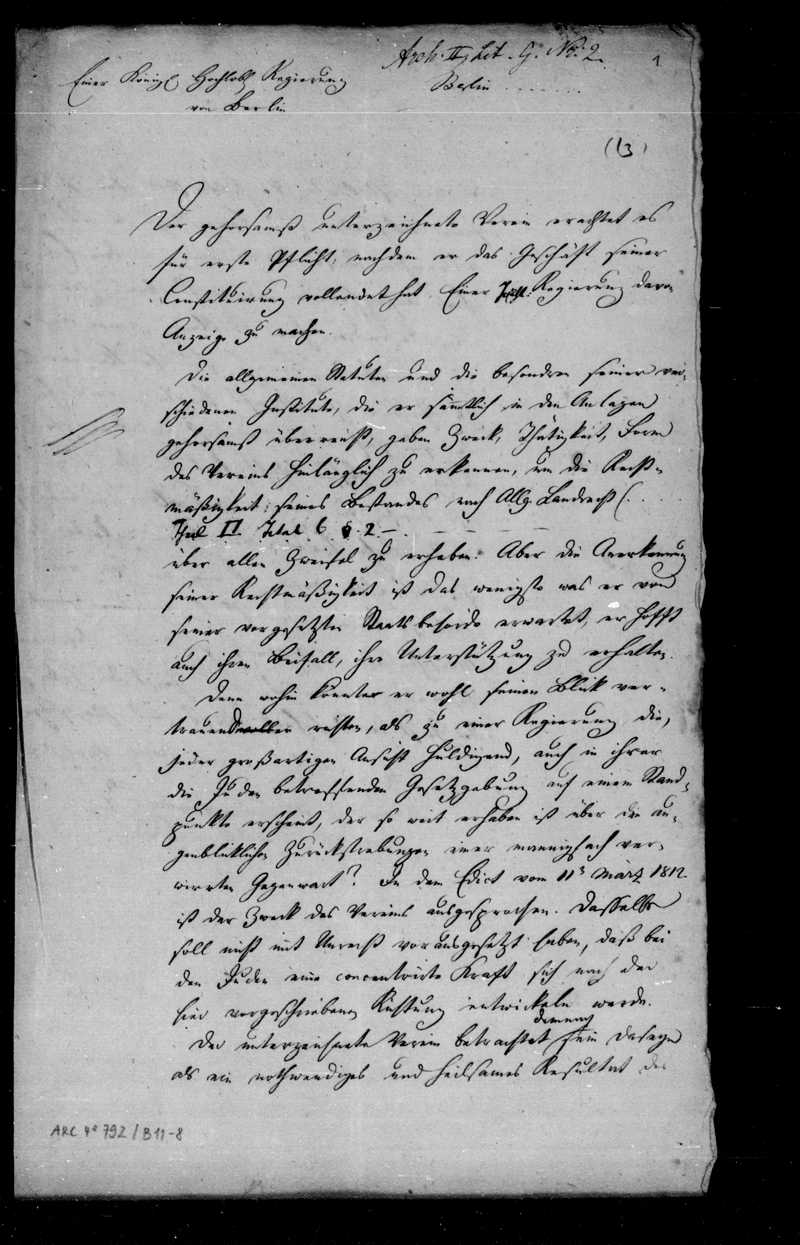 Arch. II, Lit. G. No. 2.
1
Einer Königl Hochlobl Regierung
Berlin .......
von Berlin
(13)
Der gehorsamst unterzeichnete Verein erachtet es
für erste Pflicht, nachdem er das Geschäft seiner
Constituirung vollendet hat Einer Regierung davon
Anzeige zu machen.
Die allgemeinen Statuten und die besondren seiner ver-
schiedenen Institute, die er sämtlich in den Anlagen
gehorsamst überreicht, geben Zweck, Thätigkeit, Form
des Vereins hinlänglich zu erkennen, um die Recht-
mäßigkeit seines Bestandes nach Allg. Landrecht (. . . .
Theil II Titel 6 §. 2 –. – – – – –
über allen Zweifel zu erheben. Aber die Anerkennung
seiner Rechtmäßigkeit ist das wenigste was er von
seiner vorgesetzten Staatsbehörde erwartet, er hofft
auch ihren Beifall, ihre Unterstützung zu erhalten.
Denn wohin könnte er wohl seinen Blick ver-
trauensvoller richten, als zu einer Regierung die,
jeder großartigen Ansicht huldigend, auch in ihrer
die Juden betreffenden Gesetzgebung auf einem Stand-
punkte erscheint, der so weit erhaben ist über die au-
genblicklichen Zurückstrebungen einer mannigfach ver-
wirrten Gegenwart? In dem Edict vom 11t März 1812
ist der Zweck des Vereins ausgesprochen. Dasselbe
soll nicht mit Unrecht vorausgesetzt haben, daß bei
den Juden eine concentrirte Kraft sich nach der
hier vorgeschriebenen Richtung entwickeln werde.
Der unterzeichnete Verein betrachtet demnach sein Daseyn
als ein nothwendiges und heilsames Resultat des
ARC 4° 792 / B11-8